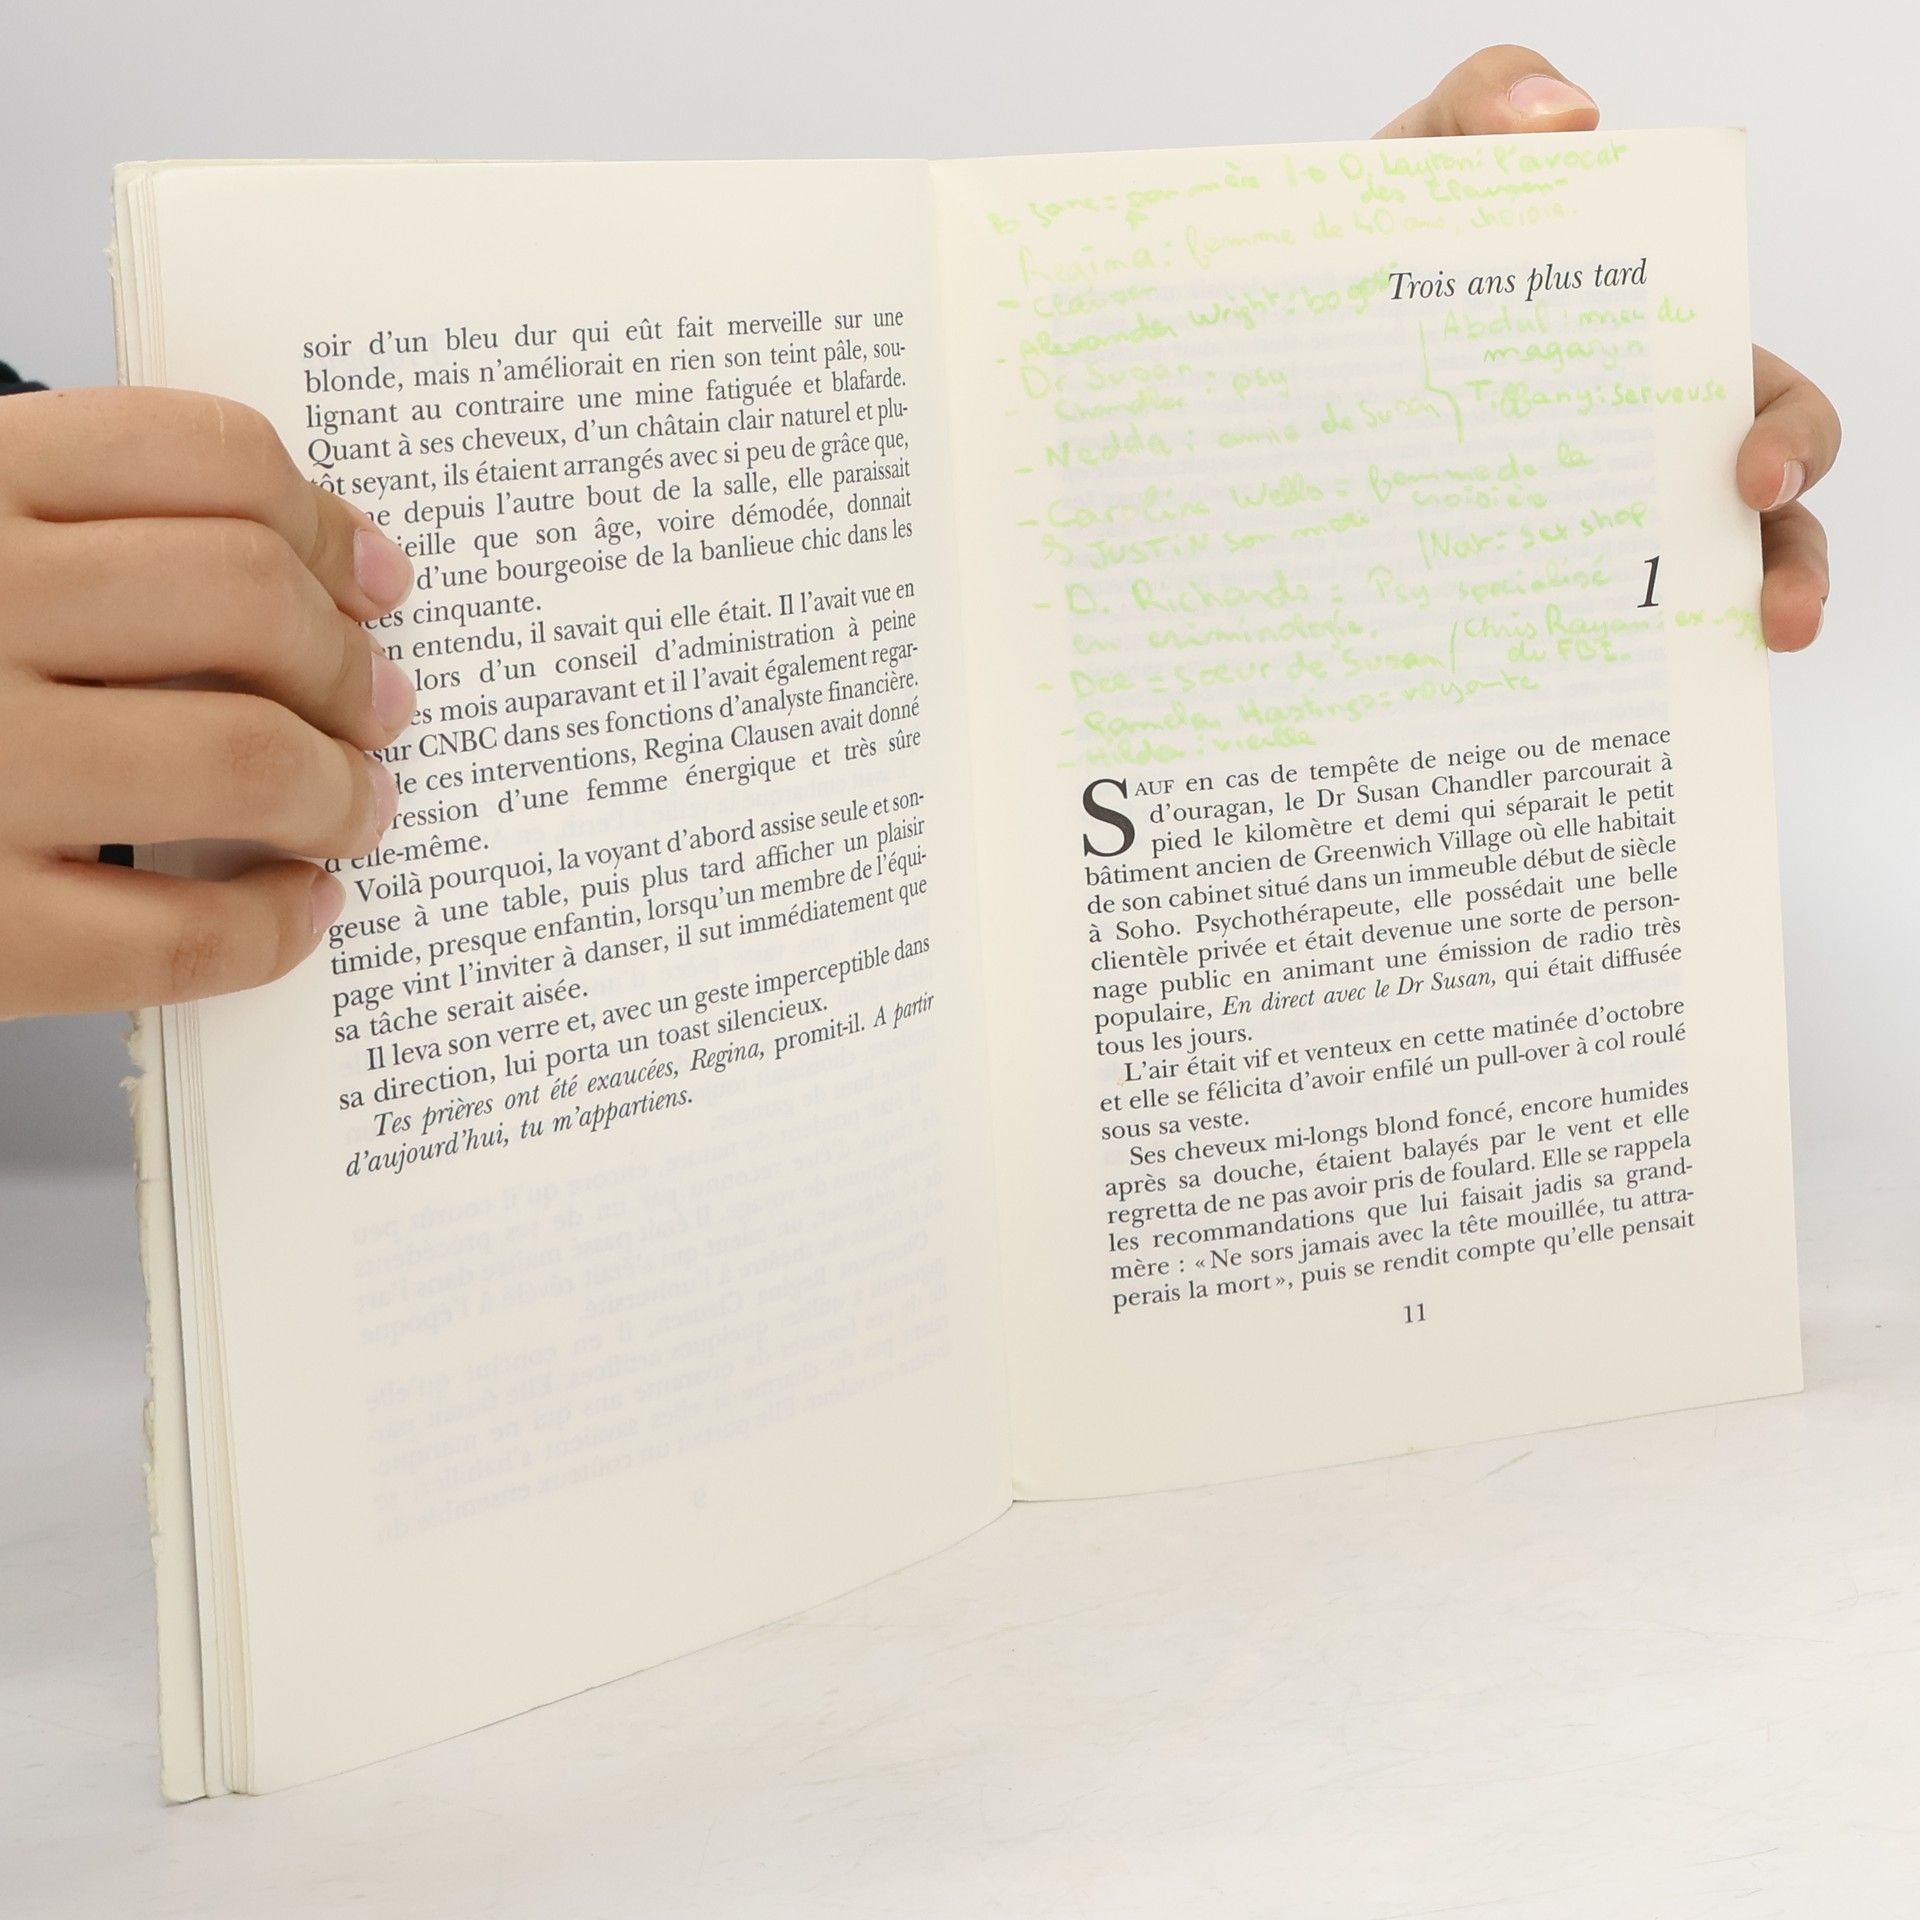 soir d'un bleu dur qui eût fait merveille sur une
blonde, mais n'améliorait en rien son teint pâle, sou-
lignant au contraire une mine fatiguée et blafarde.
Quant à ses cheveux, d'un châtain clair naturel et plu-
tôt seyant, ils étaient arrangés avec si peu de grâce que,
depuis l'autre bout de la salle, elle paraissait
que son âge, voire démodée, donnait
d'une bourgeoise de la banlieue chic dans les
cinquante.
entendu, il savait qui elle était. Il l'avait vue en
lors d'un conseil d'administration à peine
mois auparavant et il l'avait également regar-
sur CNBC dans ses fonctions d'analyste financière.
de ces interventions, Regina Clausen avait donné
d'une femme énergique et très sûre
d'elle-même.
Voilà pourquoi, la voyant d'abord assise seule et son-
geuse à une table, puis plus tard afficher un plaisir
timide, presque enfantin, lorsqu'un membre de l'équi-
page vint l'inviter à danser, il sut immédiatement que
sa tâche serait aisée.
Il leva son verre et, avec un geste imperceptible dans
sa direction, lui porta un toast silencieux.
Tes prières ont été exaucées, Regina, promit-il. A partir
d'aujourd'hui, tu m'appartiens.
Jane = mère D. Layton: l'avocat
des Clausen
Regina: femme de 40 ans,
- Clausen
Trois ans plus tard
- Alexander Wright:
Abdul: du
Dr Susan
Chandler : psy
Tiffany: serveuse
- Nedda: amie de Susan
- Caroline Wells = femme de la
croisière
JUSTIN son
Nat: sex shop
1
- D. Richards = Psy spécialisé
en criminologie.
Chris Rayan: ex
du FBI.
- Dee = soeur de Susan
- Pamela Hastings= voyante
- Hilda: vieille
SAUF en cas de tempête de neige ou de menace
d'ouragan, le Dr Susan Chandler parcourait à
pied le kilomètre et demi qui séparait le petit
bâtiment ancien de Greenwich Village où elle habitait
de son cabinet situé dans un immeuble début de siècle
à Soho. Psychothérapeute, elle possédait une belle
clientèle privée et était devenue une sorte de person-
nage public en animant une émission de radio très
populaire, En direct avec le Dr Susan, qui était diffusée
tous les jours.
L'air était vif et venteux en cette matinée d'octobre
et elle se félicita d'avoir enfilé un pull-over à col roulé
sous sa veste.
Ses cheveux mi-longs blond foncé, encore humides
après sa douche, étaient balayés par le vent et elle
regretta de ne pas avoir pris de foulard. Elle se rappela
les recommandations que lui faisait jadis sa grand-
mère : « Ne sors jamais avec la tête mouillée, tu attra-
perais la mort », puis se rendit compte qu'elle pensait
11